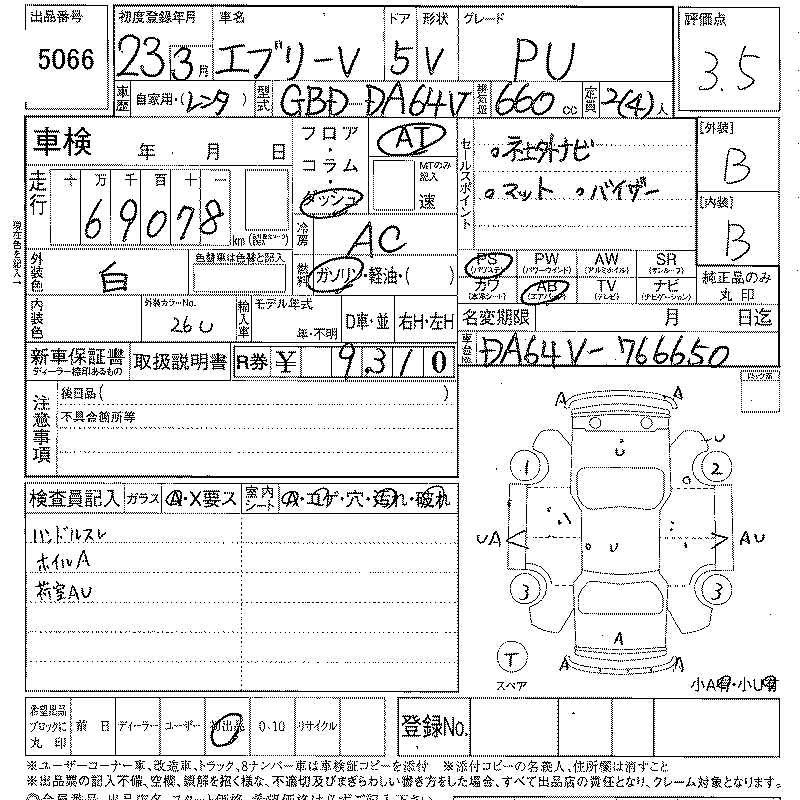 出品番号 初度登録年月 車名 ドア 形状 グレード 評価点
5066 23 3月 エブリーV 5 V PU 3.5
車歴 自家用・(レンタ) 型式 GBD-DA64V 排気量 660 cc 定員 2(4)人
車検 年 月 日 フロア・コラム・ダッシュ AT MTのみ記入 速
セールスポイント
・社外ナビ
・マット ・バイザー
[外装] B
[内装] B
走行 十 万 千 百 十 一
69078 km
現在色を記入→
冷房 AC
外装色 白 色替車は色替と記入 燃料 ガソリン・軽油・( )
PS (パワステ) PW (パワーウインド) AW (アルミホイル) SR (サンルーフ)
カワ (本革シート) AB (エアバック) TV (テレビ) ナビ (ナビゲーション)
純正品のみ丸印
内装色 外装カラーNo. 26U 輸入車 モデル年式 年・不明 D車・並 右H・左H
名変期限 月 日迄
新車保証書 ディーラー捺印あるもの 取扱説明書 R券 ¥ 9310
車台No. DA64V-766650
注意事項 後日品( )
不具合箇所等
検査員記入 ガラス A・X要ス 室内シート A・コゲ・穴・汚れ・破れ
ハンドルスレ
ホイルA
荷室AU
A A
U U
1 2
U
UA U AU
3 3
A
T A A
スペア 小A有・小U有
希望出品ブロックに丸印 前日 ディーラー ユーザー 初出品 0-10 リサイクル 登録No.
※ユーザーコーナー車、改造車、トラック、8ナンバー車は車検証コピーを添付 ※添付コピーの名義人、住所欄は消すこと
※出品票の記入不備、空欄、誤解を招く様な、不適切及びまぎらわしい書き方をした場合、すべて出品店の責任となり、クレーム対象となります。